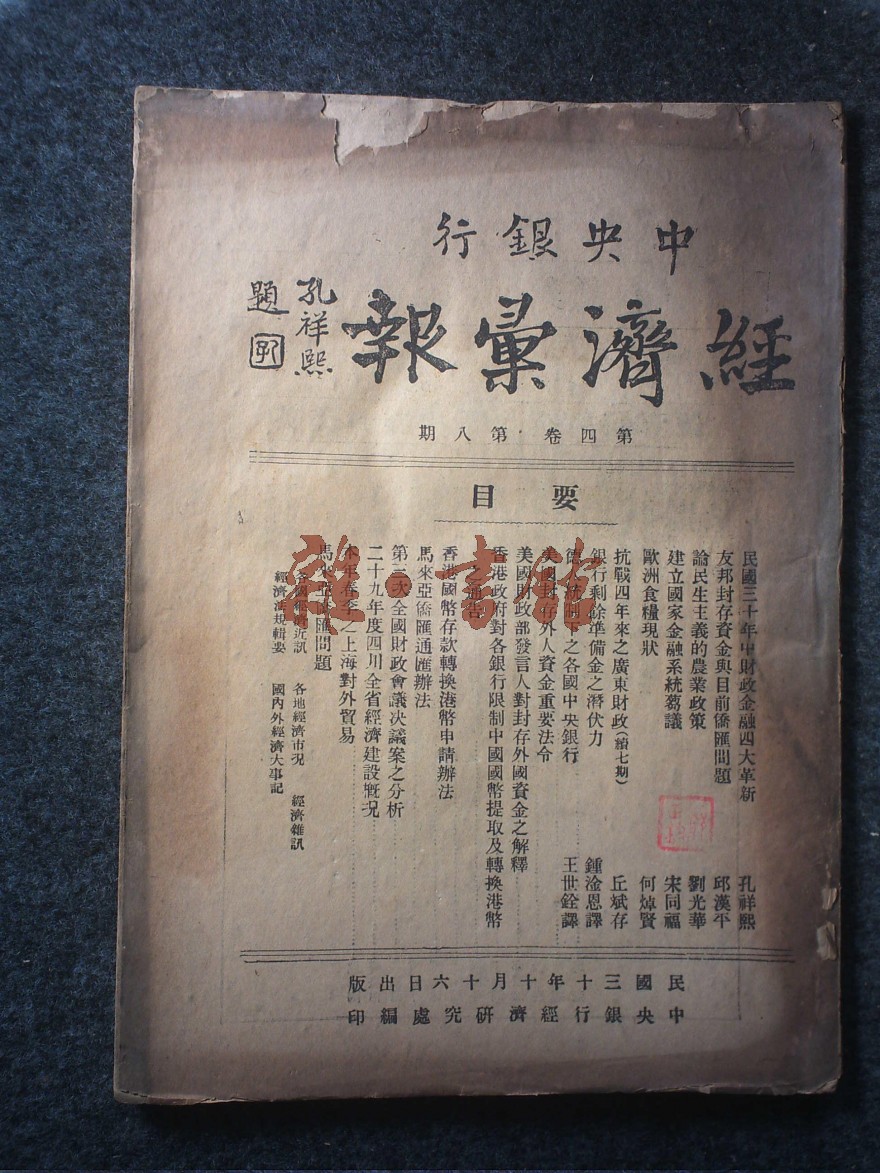 中央銀行
經濟彙報
孔祥熙
題
第四卷 第八期
要目
民國三十年中財政金融四大革新 孔祥熙
友邦封存資金與目前僑匯問題 邱漢平
論民生主義的農業政策 劉光華
建立國家金融系統芻議 宋同福
歐洲食糧現狀 何焯賢
抗戰四年來之廣東財政(續七期) 丘斌存
銀行剩餘準備金之潛伏力 鍾淦恩譯
德 法制下之各國中央銀行 王世銓譯
美國封存外人資金重要法令
美國財政部發言人對封存外國資金之解釋
香港政府對各銀行限制中國國幣提取及轉換港幣
之通告
香港國幣存款轉換港幣申請辦法
馬來亞僑匯通匯辦法
第三次全國財政會議決議案之分析
二十九年度四川全省經濟建設概況
本年春季之上海對外貿易
馬來亞外匯問題
各國 近訊 各地經濟市況 經濟雜訊
經濟法規輯要 國內外經濟大事記
民國三十年十月十六日出版
中央銀行經濟研究處編印
雜·書館